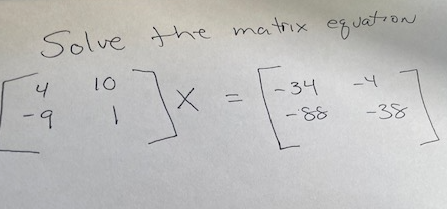 Solve the matrix equation
[4 10] X = [-34 -4]
[-9 1] [-88 -38]